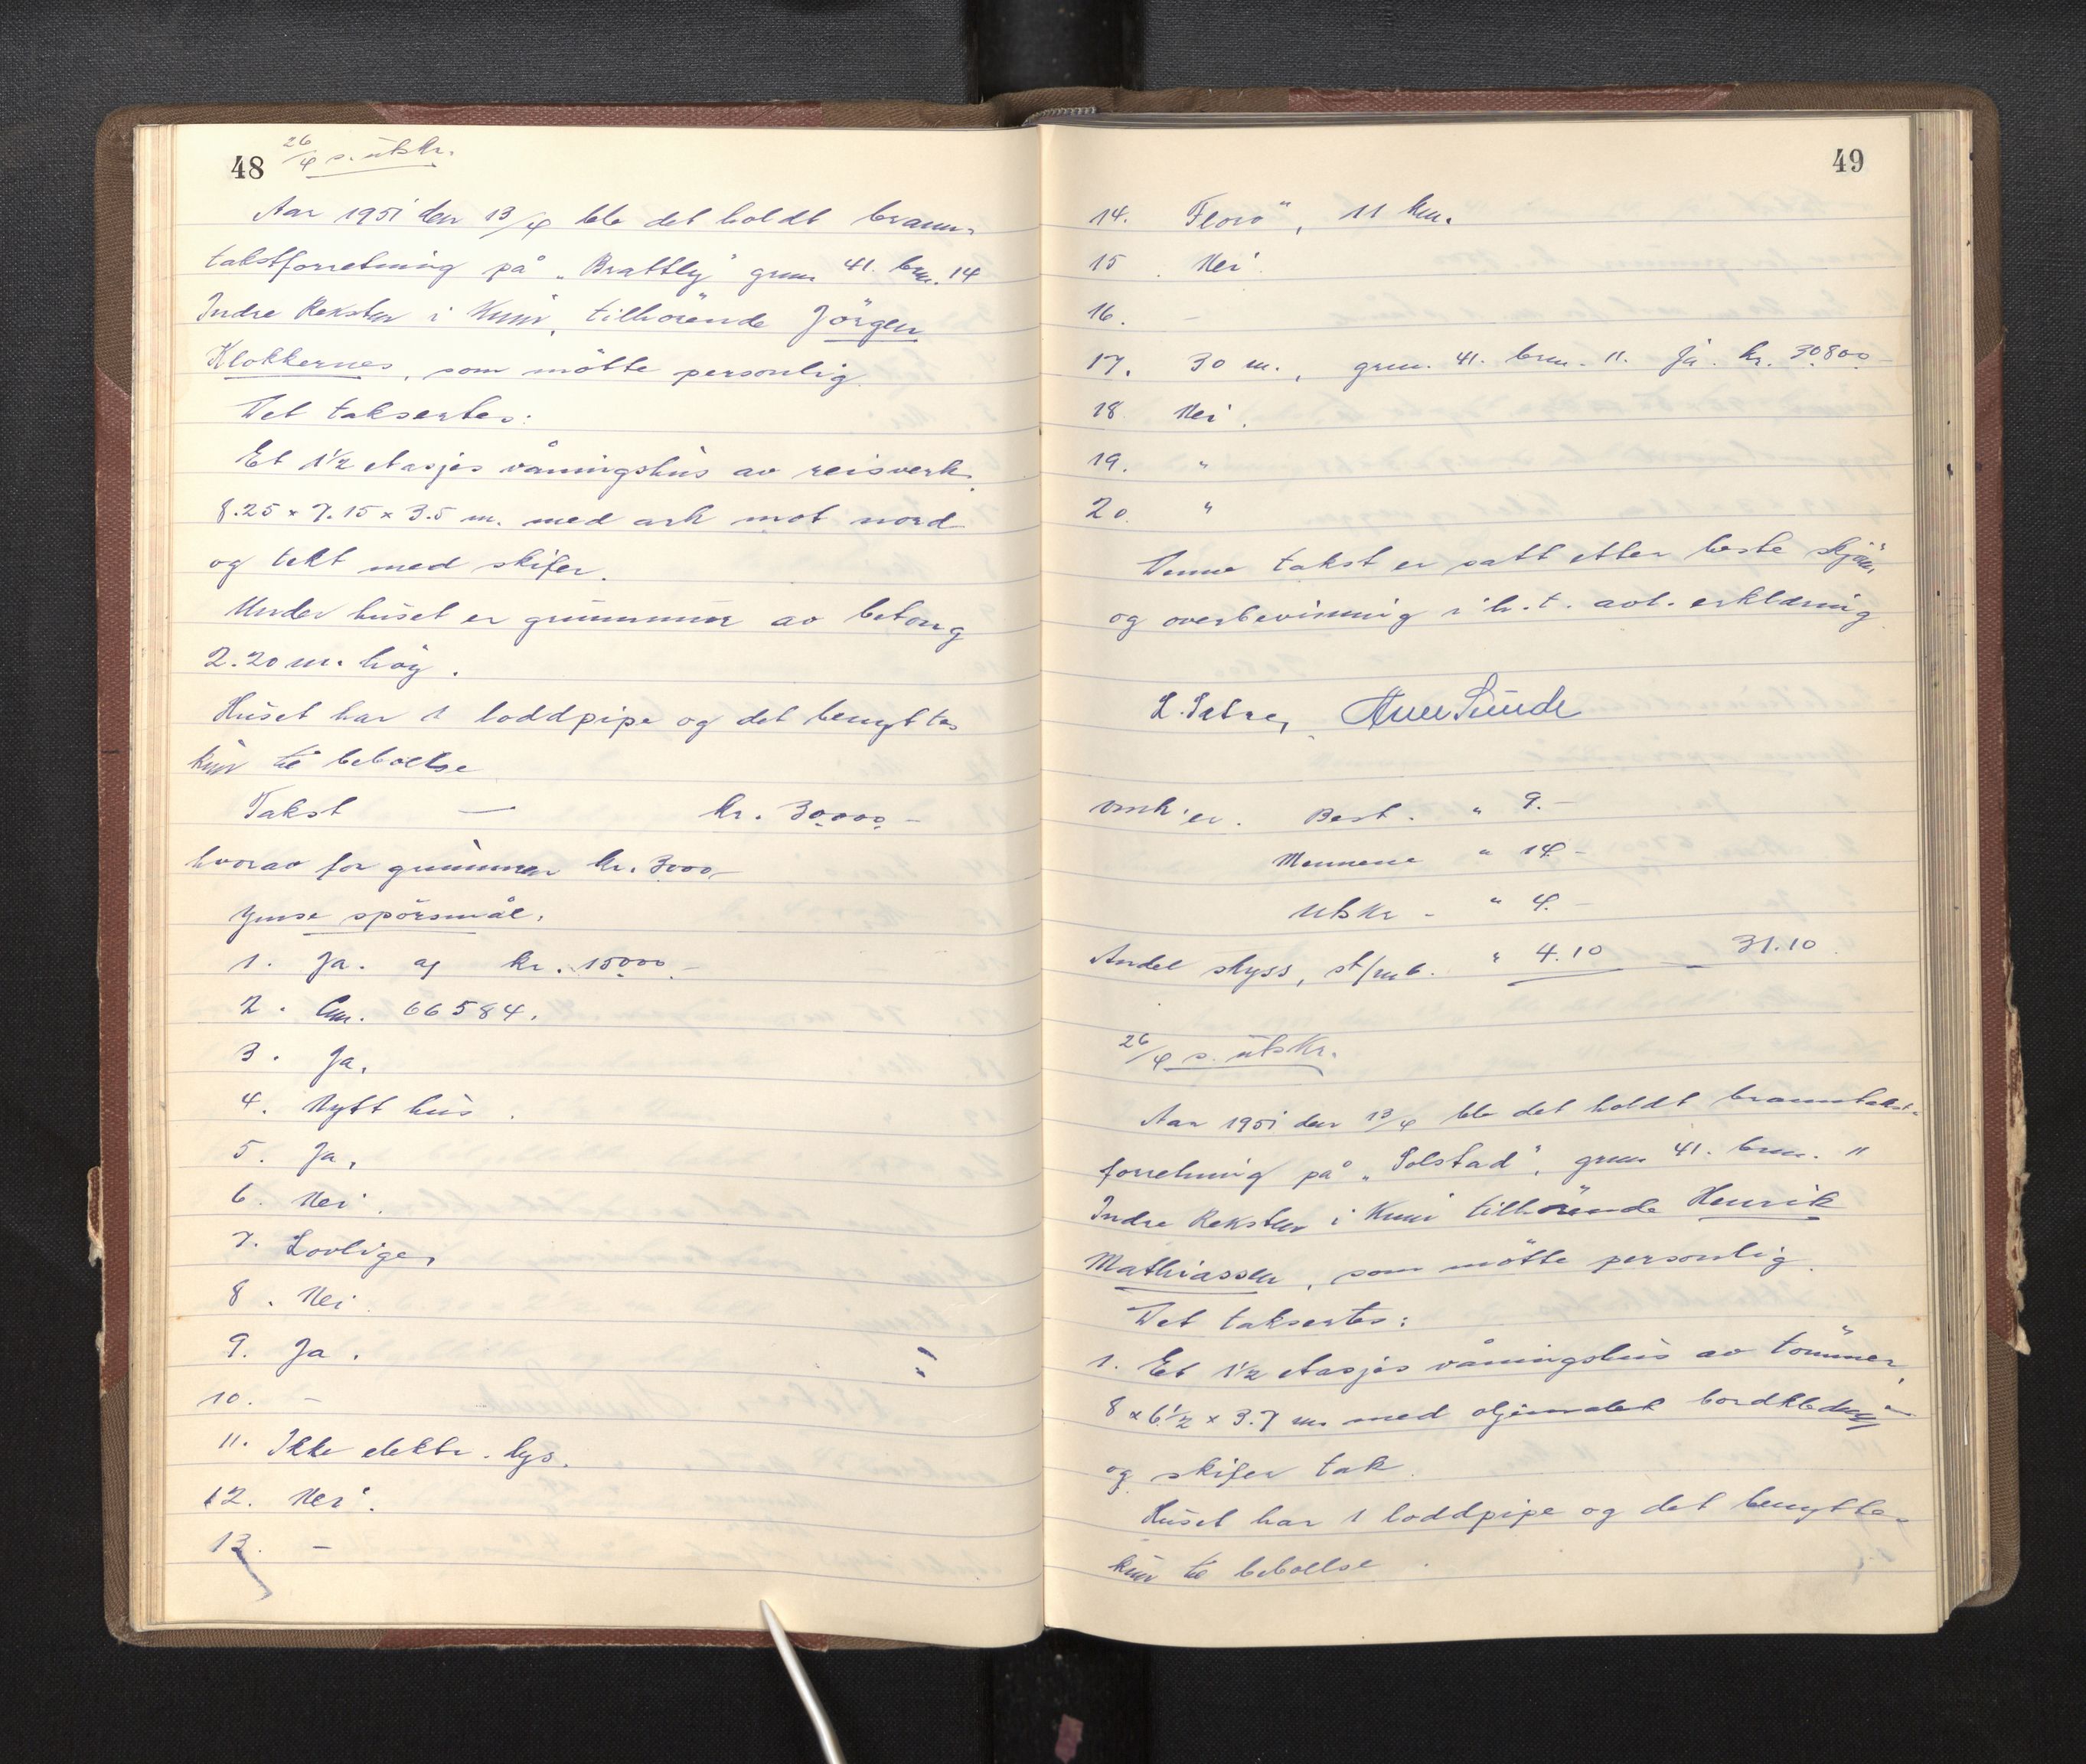 48
26/4 s. utskr.
Aar 1951 den 13/4 ble det holdt brann-
takstforretning på „Brattly" gnr. 41. bnr. 14
Indre Rekster i Kinn, tilhörende Jörgen
Klokkernes, som mötte personlig.
Det taksertes:
Et 1½ etasjes våningshus av reisverk
8.25 x 7.15 x 3.5 m. med ark mot nord
og tekt med skifer.
Under huset er grunnmur av betong
2.20 m. höy.
Huset har 1 loddpipe og det benyttes
kun til beboelse
Takst — kr. 30000 –
hvorav for grunnmur kr. 3000,–
Ymse spörsmål.
1. Ja. og kr. 15000 –
2. 66584.
3. Ja.
4. Nytt hus.
5. Ja.
6. Nei.
7. Lovlige,
8. Nei.
9. Ja.
10. –
11. Ikke elektr. lys.
12. Nei.
13. –
49
14. Florö", 11 km.
15. Nei.
16. –
17. 30 m., gnr. 41. bnr. 11. Ja. kr. 30800 –
18. Nei.
19. "
20. "
Denne takst er satt etter beste skjön,
og overbevisning i h. t. avl. erklæring
L. Sunde
omk. er. Best. " 9.–
Mennene " 14 –
Utskr – " 4. –
Andel skyss, " 4.10 – 31.10
26/4 s. utskr.
Aar 1951 den 13/4 ble det holdt branntakst-
forretning på „Solstad", gnr. 41. bnr. 11
Indre Rekster i Kinn tilhörende Henrik
Mathiassen, som mötte personlig.
Det taksertes:
1. Et 1½ etasjes våningshus av tömmer,
8 x 6½ x 3.7 m. med oljemalet bordkledning
og skifer tak.
Huset har 1 loddpipe og det benyttes
kun til beboelse.